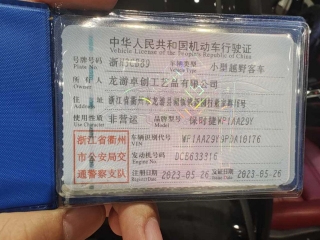 中华人民共和国机动车行驶证
Vehicle License of the People's Republic of China
号牌号码 浙 车辆类型 小型越野客车
Plate No. Vehicle Type
所有人 龙游卓创工艺品有限公司
Owner
住址 浙江省衢州市龙游县
Address
使用性质 非营运 品牌型号 保时捷WP1AA29Y
Use Character Model
浙江省衢州 车辆识别代号
市公安局交 VIN
通警察支队 发动机号码
Engine No.
注册日期 2023-05-26 发证日期 2023-05-26
Register Date Issue Date